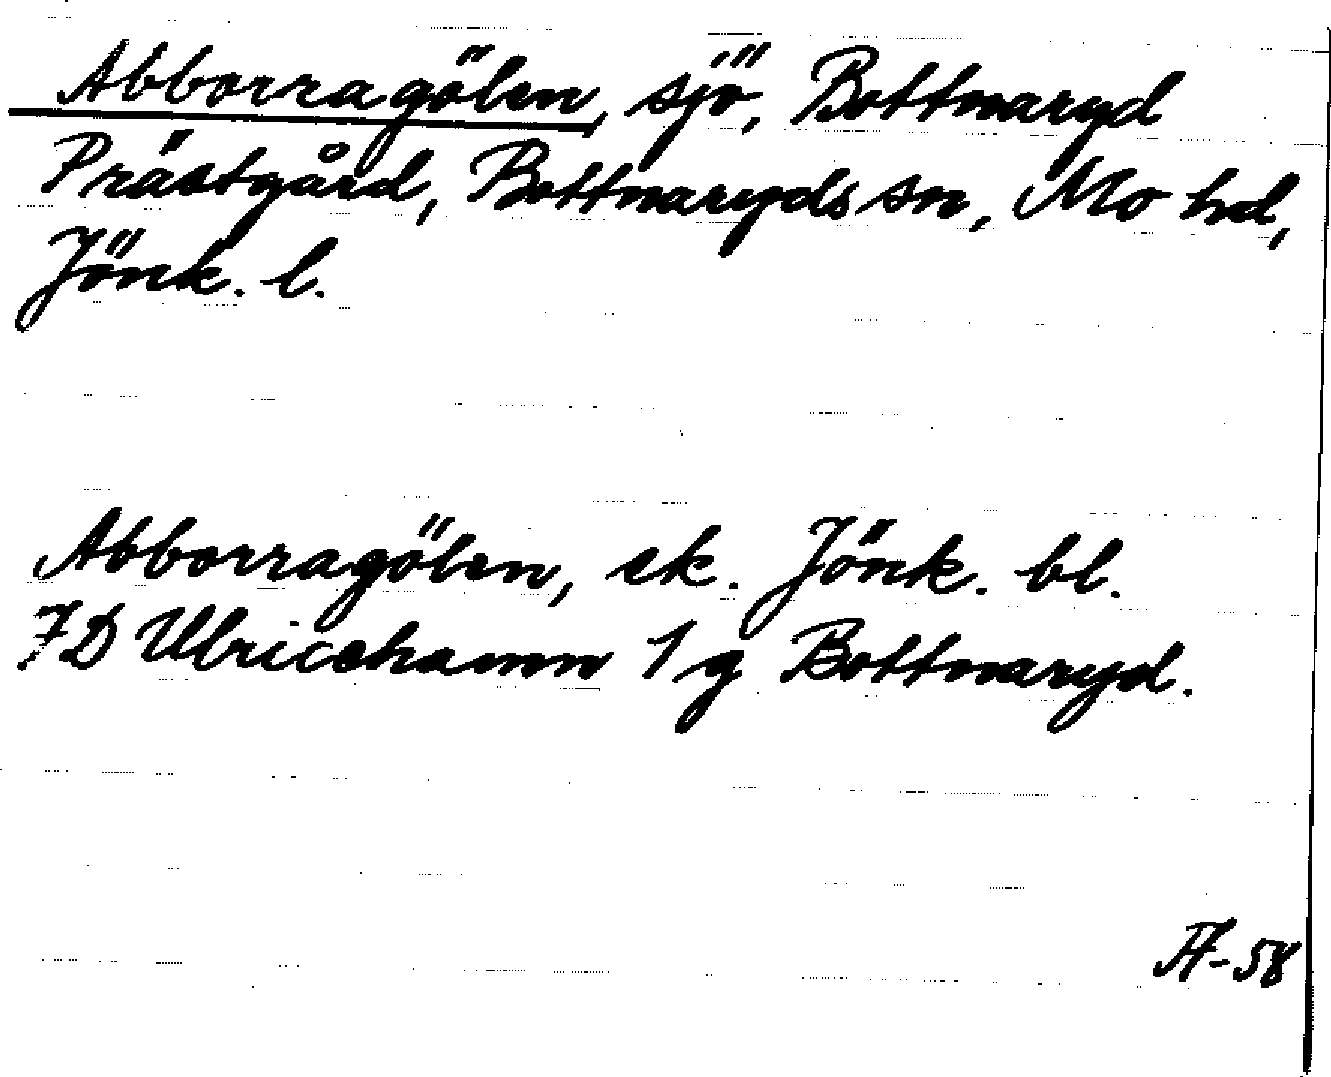 Abborragölen, sjö, Bottnaryd
Prästgård, Bottnaryds sn, Mo hd,
Jönk. l.
Abborragölen, ek. Jönk. bl.
7D Ulricehamn 1g Bottnaryd.
AF-58